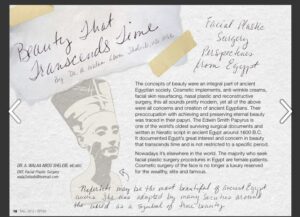 Beauty That
Transcends Time
By: Dr. A. Walaa Abou Sheleib, MD, MSC
Facial Plastic
Surgery
Perspectives
from Egypt
The concepts of beauty were an integral part of ancient
Egyptian society. Cosmetic implements, anti wrinkle creams,
facial skin resurfacing, nasal plastic and reconstructive
surgery, this all sounds pretty modern, yet all of the above
were all concerns and creation of ancient Egyptians. Their
preoccupation with achieving and preserving eternal beauty
was traced in their papyri. The Edwin Smith Papyrus is
one of the world's oldest surviving surgical documents and
written in hieratic script in ancient Egypt around 1600 B.C.
It documented Egypt's great interest and concern in beauty
that transcends time and is not restricted to a specific period.
Nowadays it's elsewhere in the world. The majority who seek
facial plastic surgery procedures in Egypt are female patients.
Cosmetic surgery of the face is no longer a luxury reserved
for the wealthy, elite and famous.
DR. A. WALAA ABOU SHELEIB, MD, MSC
ENT, Facial Plastic Surgery
Nefertiti may be the most beautiful of ancient Egypt
queens. She was adopted by many societies around
the world as a symbol of true beauty.